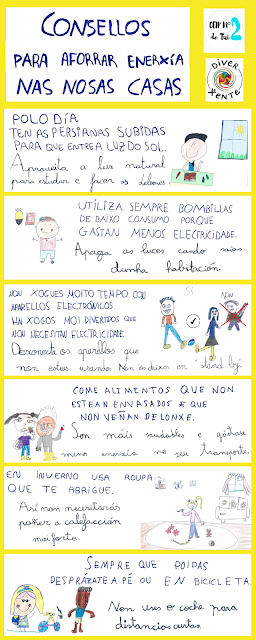 CONSELLOS
PARA AFORRAR ENERXÍA
NAS NOSAS CASAS
Nº 2
de Tui
DIVER
XENTE
POLO DÍA
TEN AS PERSIANAS SUBIDAS
PARA QUE ENTRE A LUZ DO SOL.
Aproveita a luz natural
para estudar e facer os deberes.
UTILIZA SEMPRE BOMBILLAS
DE BAIXO CONSUMO PORQUE
GASTAN MENOS ELECTRICIDADE.
Apaga as luces cando saias
dunha habitación.
NON XOGUES MOITO TEMPO CON
APARELLOS ELECTRÓNICOS.
HAI XOGOS MOI DIVERTIDOS QUE
NON NECESITAN ELECTRICIDADE
Desconecta os aparellos que
non estes usando. Non os deixes en stand by.
SI
NON
COME ALIMENTOS QUE NON
ESTEAN ENVASADOS E QUE
NON VEÑAN DE LONXE.
Son máis saudables e gástase
menos enerxía no seu transporte.
EN INVERNO USA ROUPA
QUE TE ABRIGUE.
Así non necesitarás
poñer a calefacción
moi forte.
SEMPRE QUE POIDAS
DESPRÁZATE A PÉ OU EN BICICLETA.
Non uses o coche para
distancias curtas.